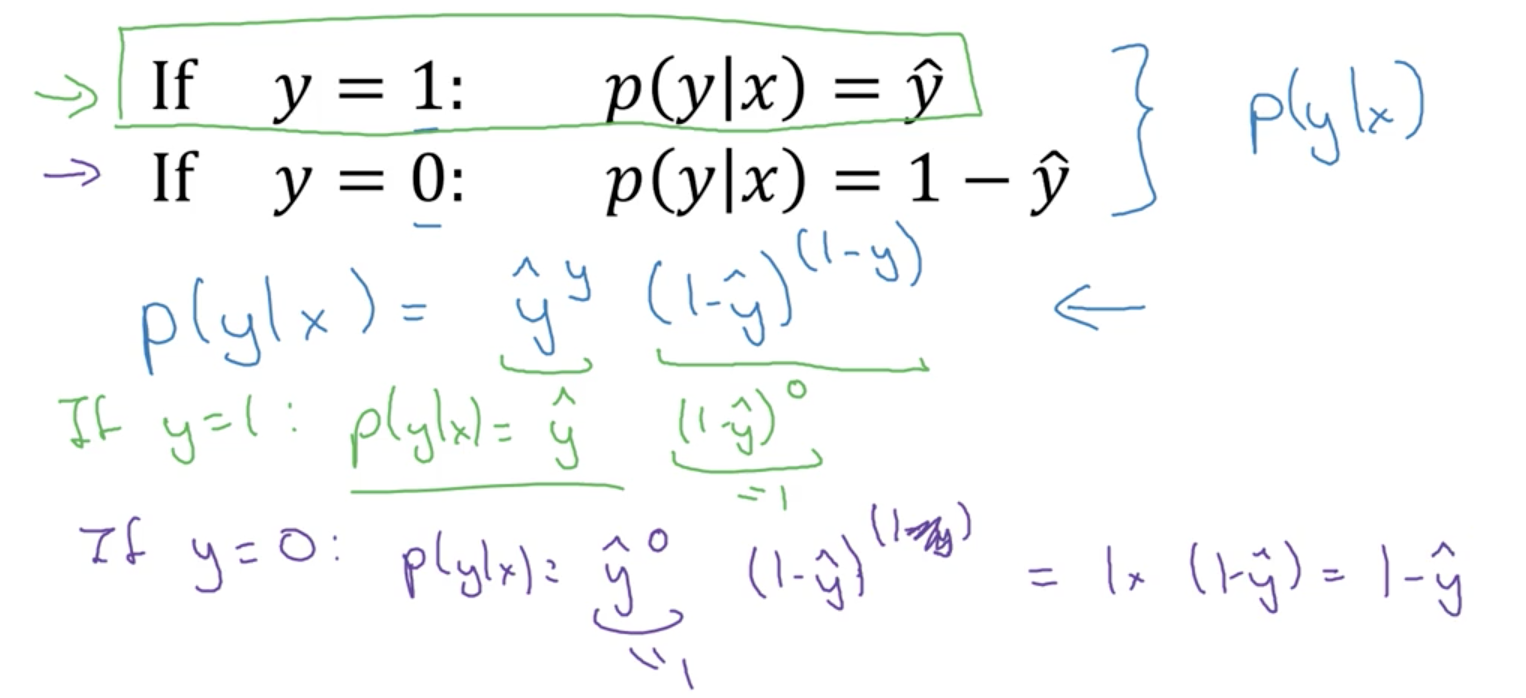 If y = 1: p(y|x) = ŷ
If y = 0: p(y|x) = 1 − ŷ } p(y|x)
p(y|x) = ŷ^y (1-ŷ)^(1-y) ←
If y=1: p(y|x) = ŷ (1-ŷ)^0
=1
If y=0: p(y|x) = ŷ^0 (1-ŷ)^(1-y) = 1 × (1-ŷ) = 1-ŷ
=1